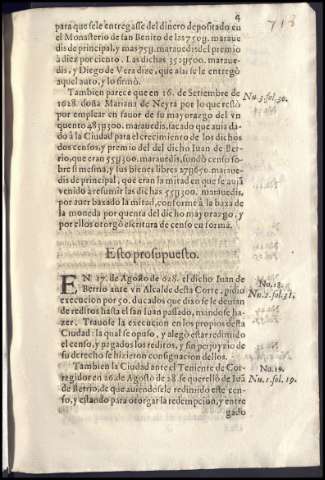 4
713
para que se le entregasse del dinero depositado en
el Monasterio de san Benito de las 75oy. maraue
dis de principal, y mas 75y. marauedis del premio
à diez por ciento. Las dichas 35y500. maraue-
dis, y Diego de Vera dize, que alai se le entregò
aquel auto, y lo firmò.
Tambien parece que en 16. de Setiembre de
1628. doña Mariana de Neyra por lo que restò
por emplear en fauor de su mayorazgo del vn
quento 485y300. marauedis, sacado que auia da-
dò à la Ciudad para el crecimiento de los dichos
dos censos, y premio del del dicho Iuan de Ber-
rio, que eran 55y300. marauedis, fundò censo so-
bre si mesma, y sus bienes libres 27y650. maraue-
dis de principal, que eran la mitad en que se auiã
venido à resumir las dichas 55y300. marauedis,
por auer baxado la mitad, conforme à la baxa de
la moneda por quenta del dicho mayorazgo, y
por ellos otorgò escritura de censo en forma.
Nu. 3. fol. 30.
Esto prosupuesto.
EN 17. de Agosto de 628. el dicho Iuan de
Berrio ante vn Alcalde desta Corte, pidio
execucion por 50. ducados que dixo se le deuian
de reditos hasta el san Iuan passado, mandose ha-
zer. Trauose la execucion en los propios desta
Ciudad: la qual se opuso, y alegò estar redimido
el censo, y pagados los reditos, y sin perjuyzio de
su derecho se hizieron consignacion dellos.
No. 18.
Nu. 2. fol. 31.
Tambien la Ciudad ante el Teniente de Cor-
regidor en 26. de Agosto de 28. se querellò de Iuã
de Berrio, de que auiendose redimido este cen-
so, y estando para otorgar la redempcion, y entre
gado
No. 19.
Nu. 1. fol. 19.